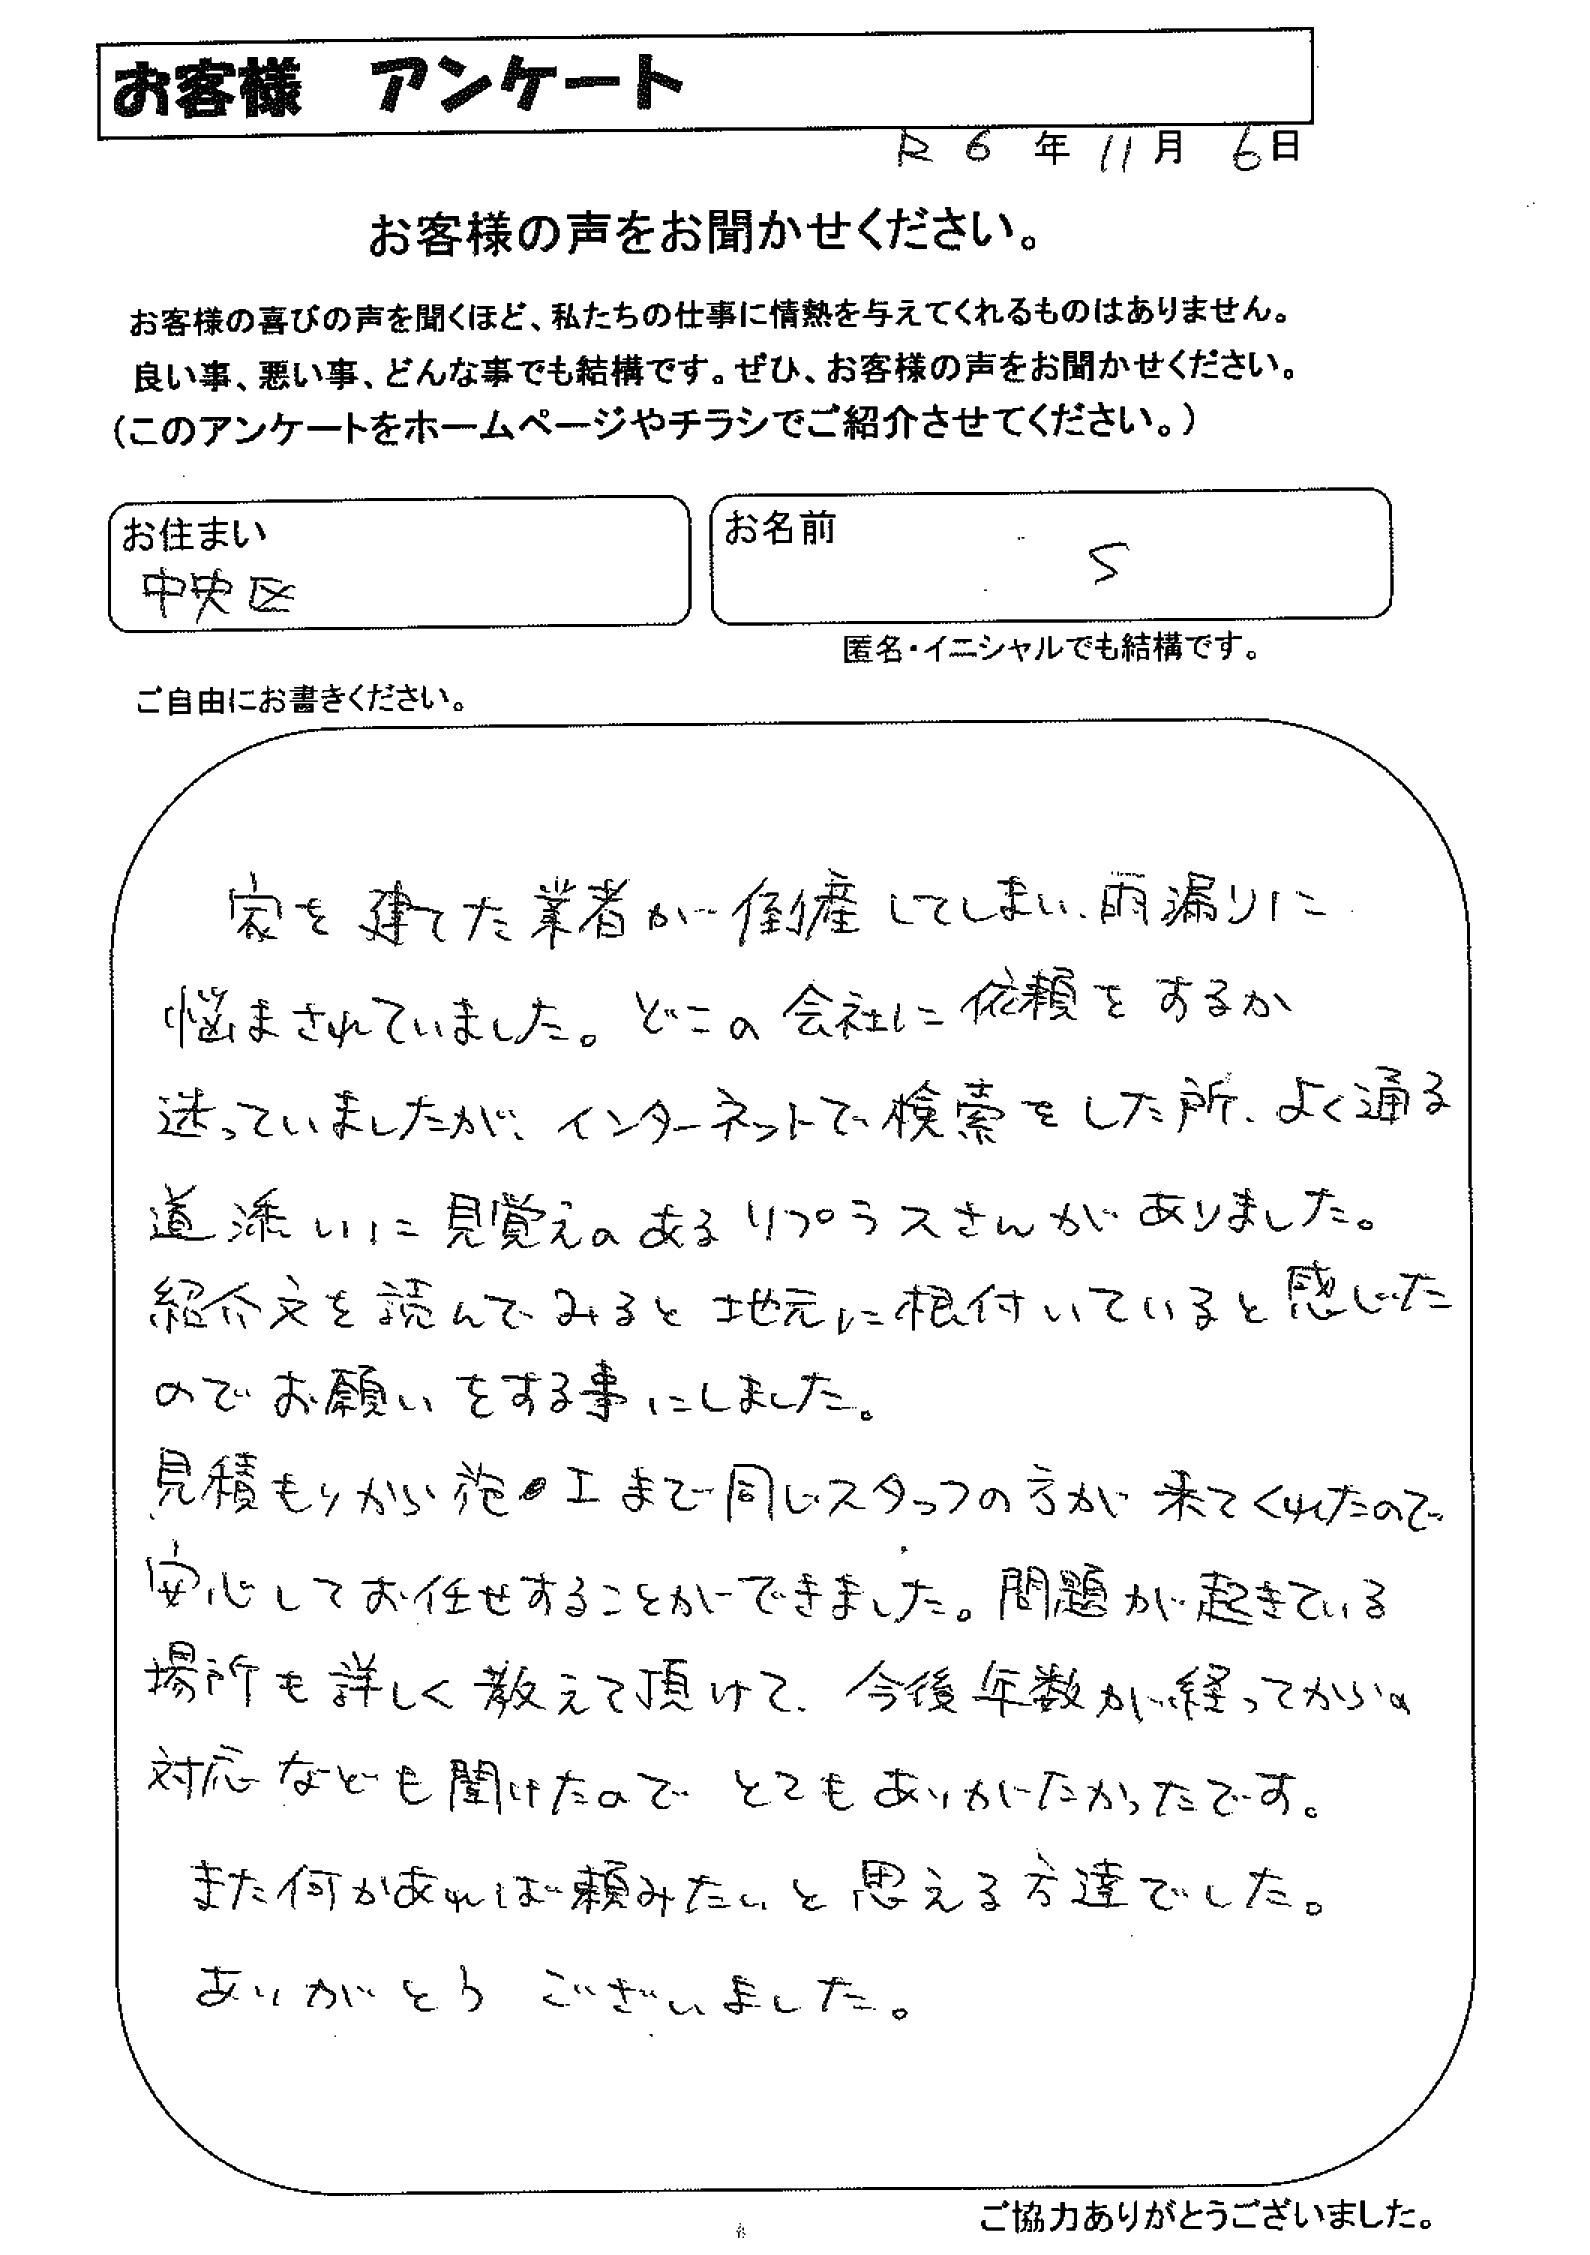 お客様　アンケート
R6年11月6日
お客様の声をお聞かせください。
お客様の喜びの声を聞くほど、私たちの仕事に情熱を与えてくれるものはありません。
良い事、悪い事、どんな事でも結構です。ぜひ、お客様の声をお聞かせください。
（このアンケートをホームページやチラシでご紹介させてください。）
お住まい
中央区
お名前
S
匿名・イニシャルでも結構です。
ご自由にお書きください。
家を建てた業者が倒産してしまい、雨漏りに
悩まされていました。どこの会社に依頼をするか
迷っていましたが、インターネットで検索をした所、よく通る
道添いに見覚えのあるリプラスさんがありました。
紹介文を読んでみると地元に根付いていると感じた
のでお願いをする事にしました。
見積もりから施工まで同じスタッフの方が来てくれたので
安心してお任せすることができました。問題が起きている
場所も詳しく教えて頂けて、今後年数が経ってからの
対応なども聞けたのでとてもありがたかったです。
また何かあれば頼みたいと思える方達でした。
ありがとうございました。
ご協力ありがとうございました。